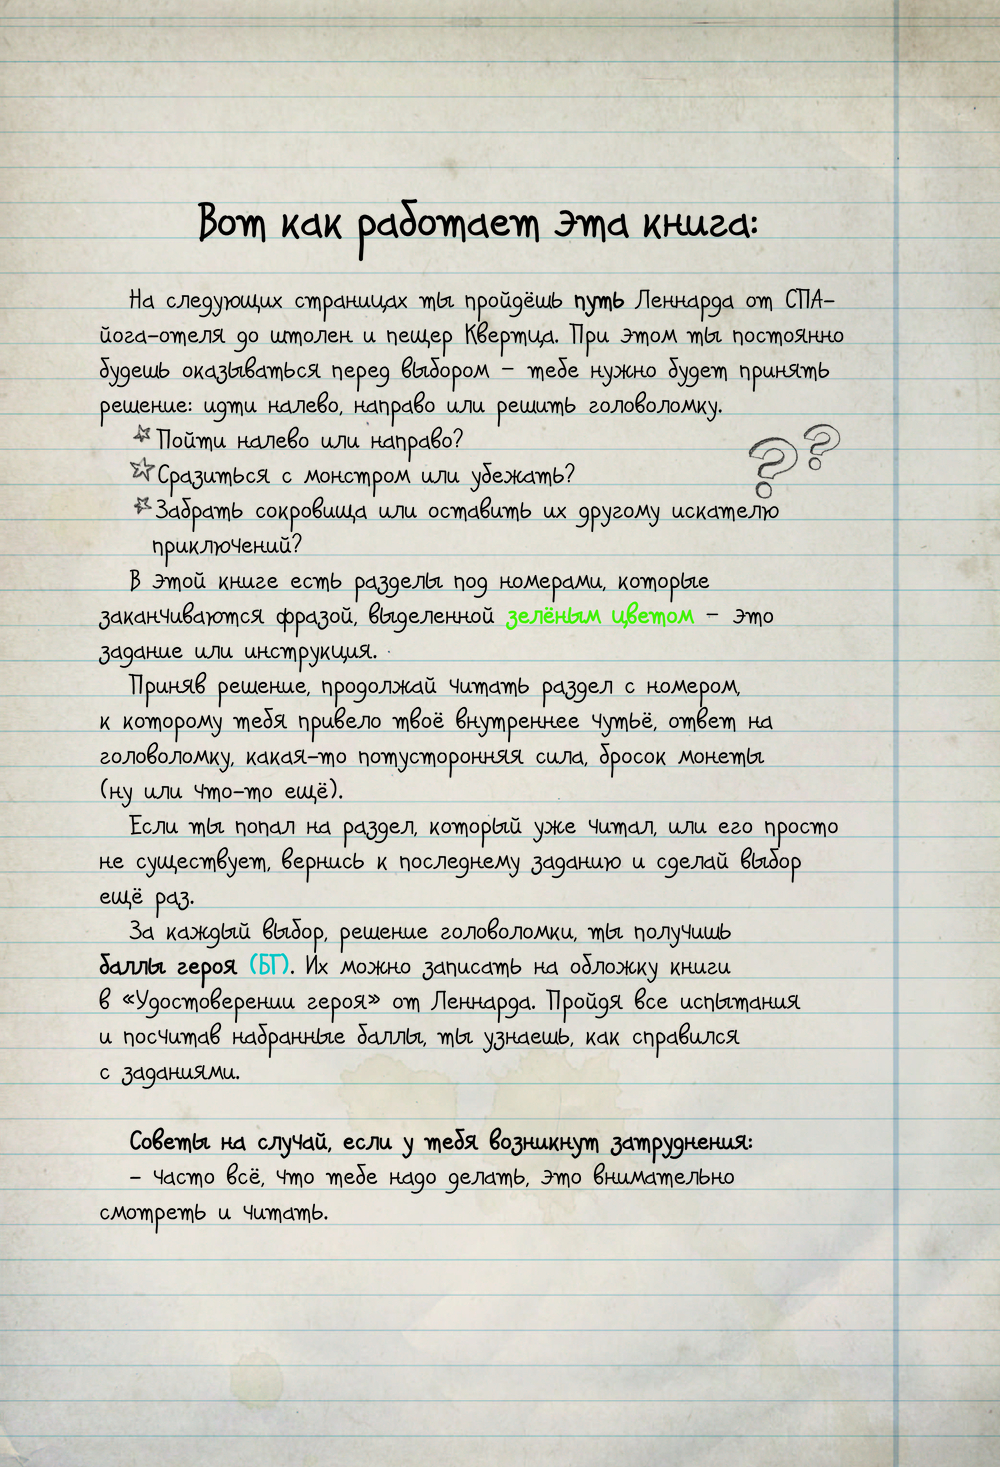 Вот как работает эта книга:
На следующих страницах ты пройдёшь путь Леннарда от СПА-
йога-отеля до штолен и пещер Квертца. При этом ты постоянно
будешь оказываться перед выбором – тебе нужно будет принять
решение: идти налево, направо или решить головоломку.
Пойти налево или направо?
Сразиться с монстром или убежать?
??
Забрать сокровища или оставить их другому искателю
приключений?
В этой книге есть разделы под номерами, которые
заканчиваются фразой, выделенной зелёным цветом – это
задание или инструкция.
Приняв решение, продолжай читать раздел с номером,
к которому тебя привело твоё внутреннее чутьё, ответ на
головоломку, какая-то потусторонняя сила, бросок монеты
(ну или что-то ещё).
Если ты попал на раздел, который уже читал, или его просто
не существует, вернись к последнему заданию и сделай выбор
ещё раз.
За каждый выбор, решение головоломки, ты получишь
баллы героя (БГ). Их можно записать на обложку книги
в «Удостоверении героя» от Леннарда. Пройдя все испытания
и посчитав набранные баллы, ты узнаешь, как справился
с заданиями.
Советы на случай, если у тебя возникнут затруднения:
– часто всё, что тебе надо делать, это внимательно
смотреть и читать.